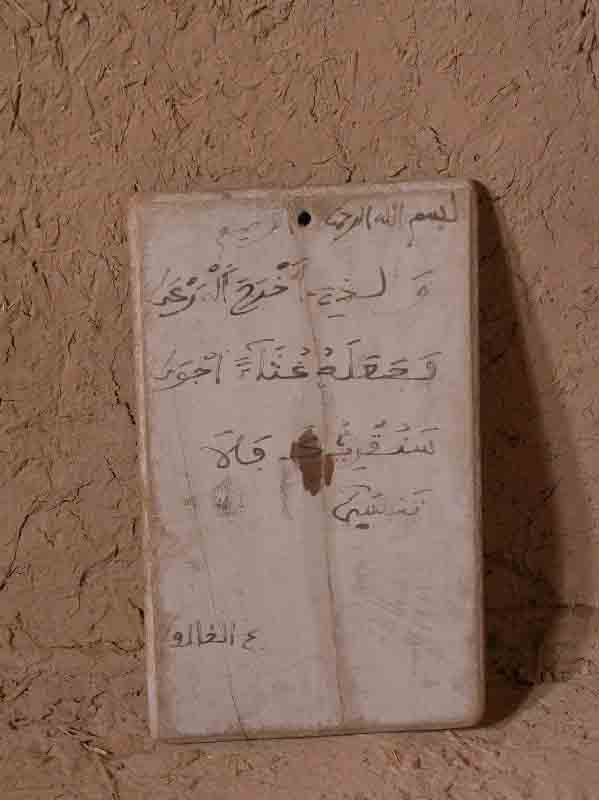 بسم الله الرحمن الرحيم
وَلذِي أَخْرَجَ ألْمَرْعَىٰ
وَجَعَلَهُ غُثَاءً احْوَىٰ
سَنُقْرِئُكَ فَلَا
تَنسَىٰ